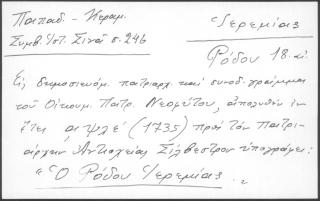 Παπαδ. - Κεραμ.
Ἱερεμίας
Συμβ. Ἱστ. Σινᾶ σ. 246
Ῥόδου 18. αἰ
Εἰς δημοσιευόμ. πατριαρχ. καὶ συνοδ. γράμμα
τοῦ Οἰκουμ. Πατρ. Νεοφύτου, ἀπολυθὲν ἐν
ἔτει αψλέ (1735) πρὸς τὸν Πατρι-
άρχην Ἀντιοχείας Σίλβεστρον ὑπογράφει:
"Ὁ Ῥόδου Ἱερεμίας